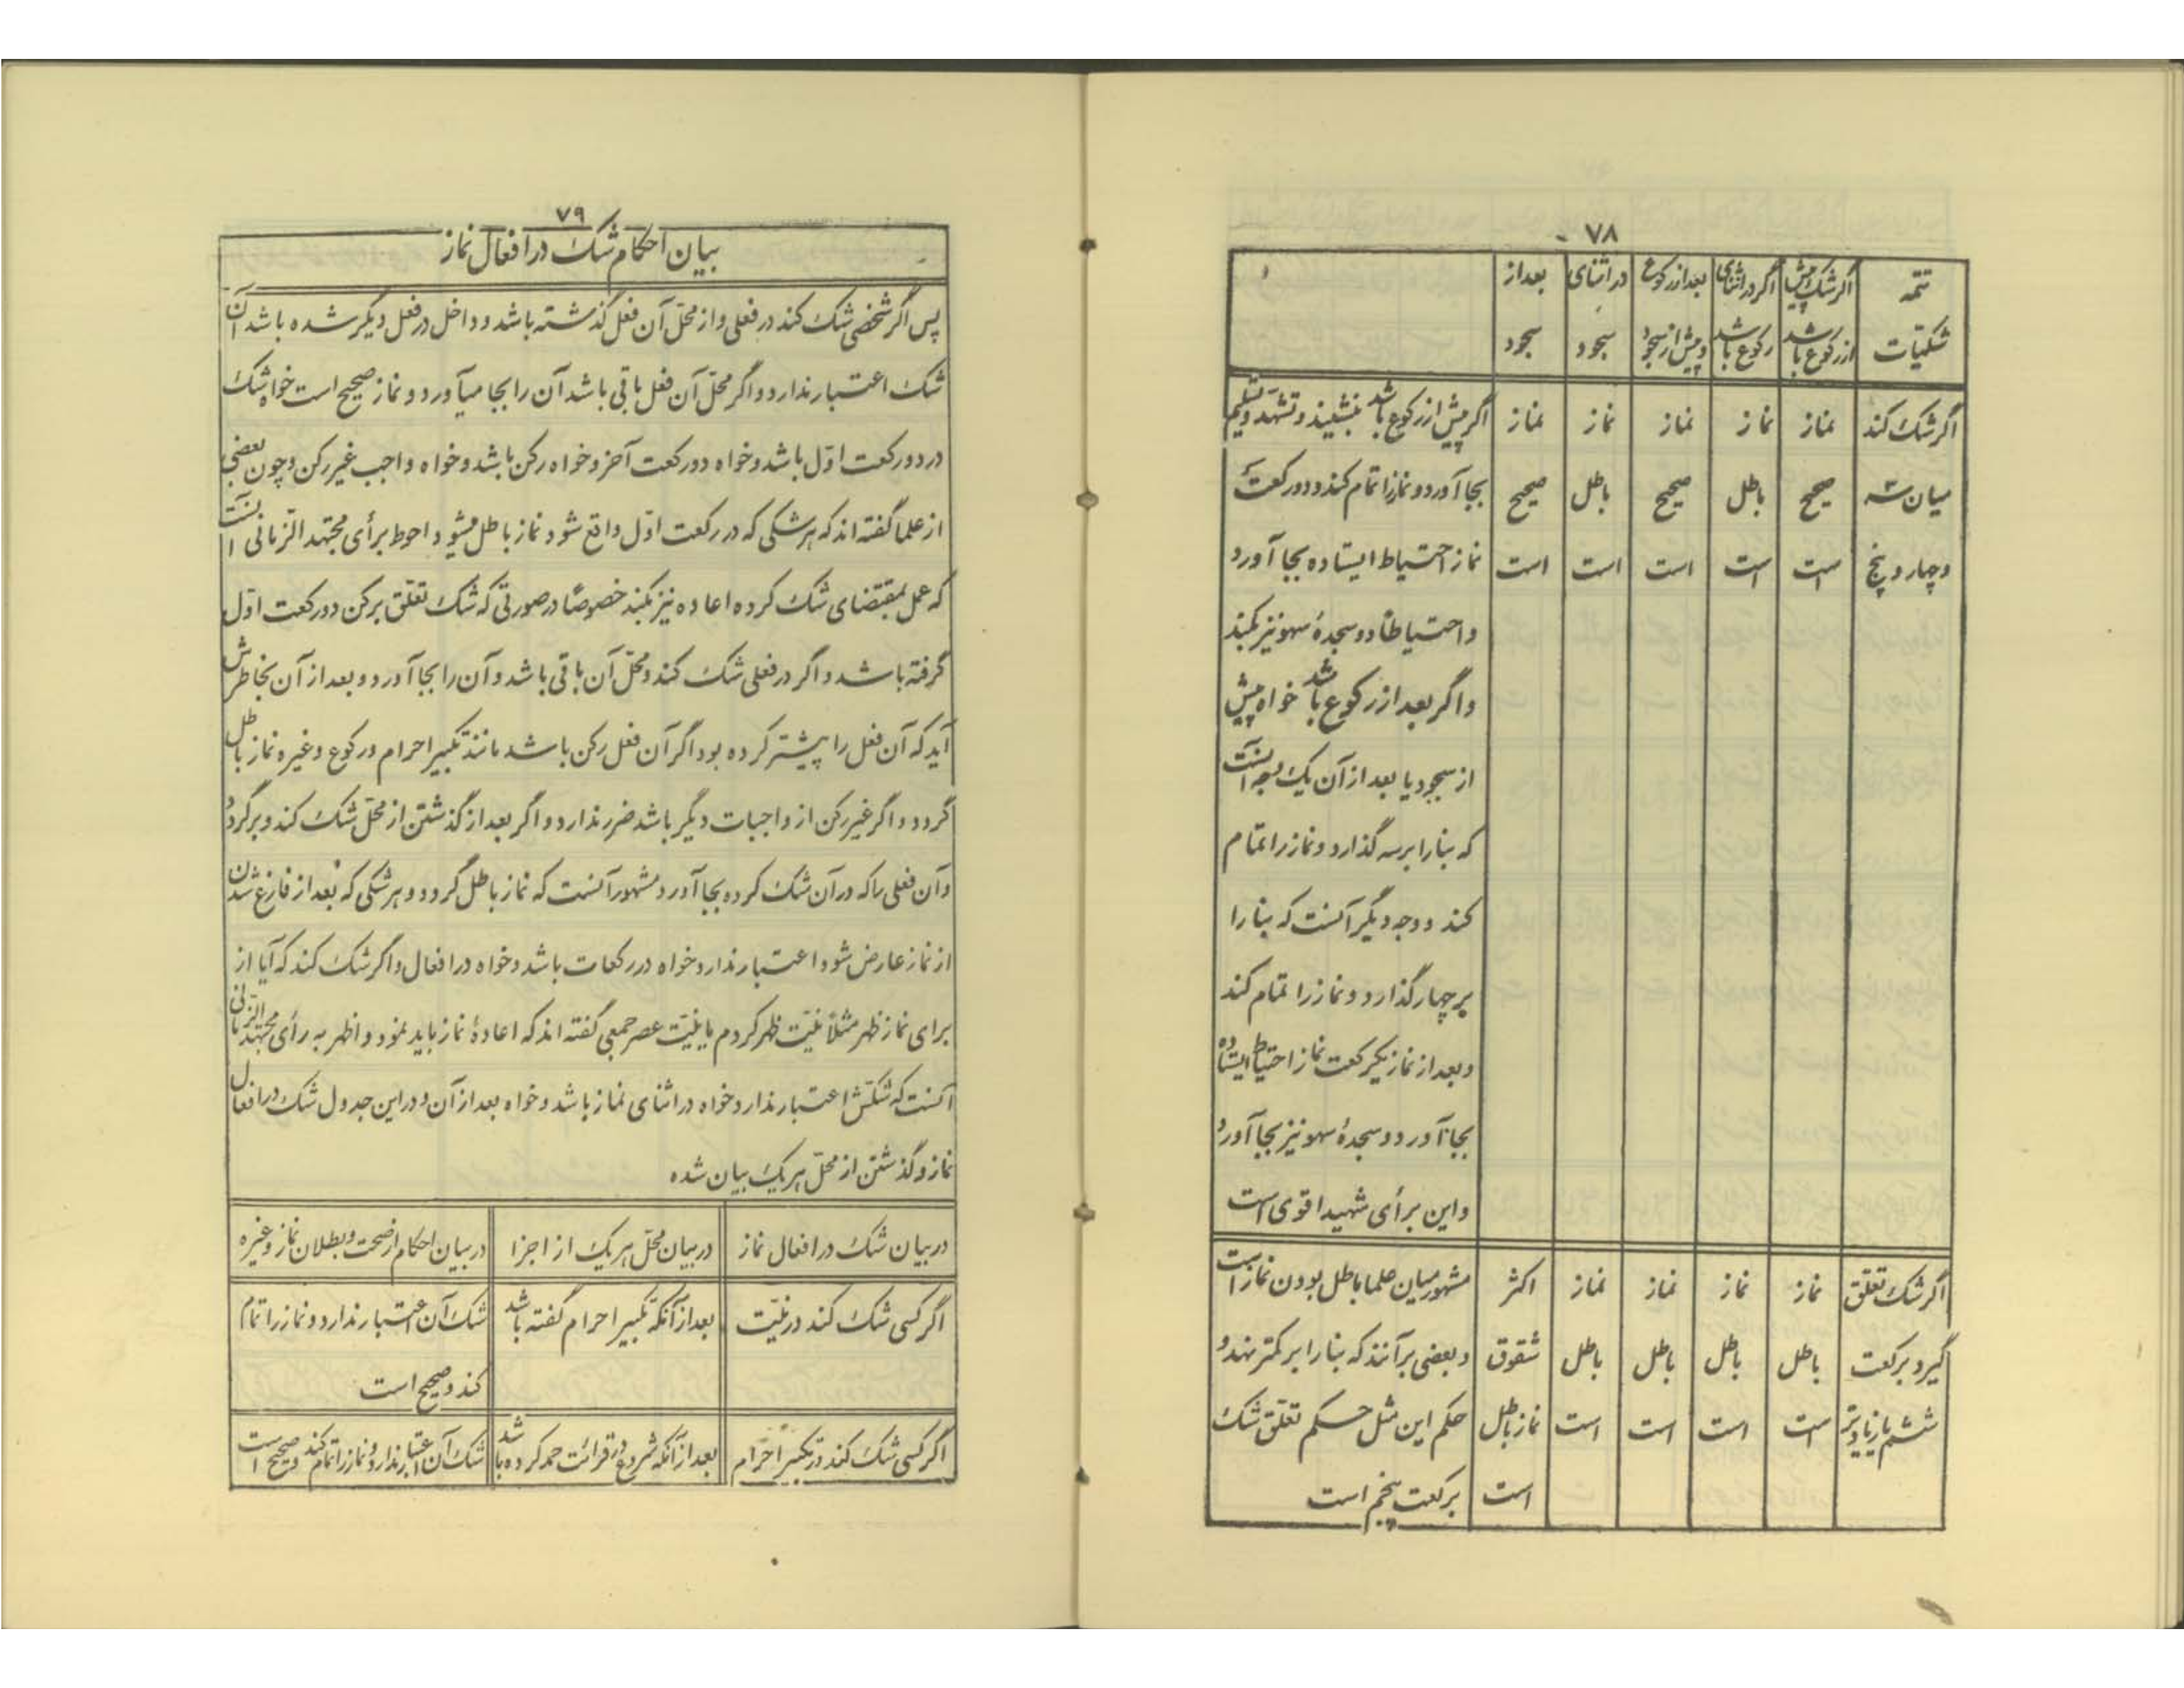 ۷۸
تتمه شکیات | اگر شک پیش از رکوع باشد | اگر در اثنای رکوع باشد | بعد از رکوع و پیش از سجود | در اثنای سجود | بعد از سجود
اگر شک کند | نماز | نماز | نماز | نماز | نماز | اگر پیش از رکوع باشد بنشیند و تشهد و تسلیم
میان سه | صحیح | باطل | صحیح | باطل | صحیح | بجا آورد و نماز را تمام کند و دو رکعت
و چهار و پنج | است | است | است | است | است | نماز احتیاط ایستاده بجا آورد
و احتیاطاً دو سجدهٔ سهو نیز بکند
و اگر بعد از رکوع باشد خواه پیش
از سجود یا بعد از آن یک وجه آنست
که بنا را بر سه گذارد و نماز را تمام
کند و وجه دیگر آنست که بنا را
بر چهار گذارد و نماز را تمام کند
و بعد از نماز یکرکعت نماز احتیاط ایستاده
بجا آورد و دو سجدهٔ سهو نیز بجا آورد
و این برأی شهید اقوی است
اگر شک تعلّق | نماز | نماز | نماز | نماز | اکثر | مشهور میان علما باطل بودن نماز است
گیرد برکعت | باطل | باطل | باطل | باطل | شقوق | و بعضی بر آنند که بنا را بر کمتر نهد و
ششم یا زیادتر | است | است | است | است | نماز باطل | حکم این مثل حکم تعلّق شک
است | برکعت پنجم است
۷۹
بیان احکام شک در افعال نماز
پس اگر شخصی شک کند در فعلی و از محلّ آن فعل گذشته باشد و داخل در فعل دیگر شده باشد آن
شک اعتبار ندارد و اگر محلّ آن فعل باقی باشد آن را بجا میآورد و نماز صحیح است خواه شک
در دو رکعت اوّل باشد و خواه دو رکعت آخر و خواه رکن باشد و خواه واجب غیر رکن و چون بعضی
از علما گفته اند که هر شکی که در رکعت اوّل واقع شود نماز باطل میشود و احوط برأی مجتهد الزمانی آنست
که عمل بمقتضای شک کرده اعاده نیز بکند خصوصاً در صورتی که شک تعلّق برکن دو رکعت اوّل
گرفته باشد و اگر در فعلی شک کند و محلّ آن باقی باشد و آن را بجا آورد و بعد از آن بخاطرش
آید که آن فعل را پیشتر کرده بود اگر آن فعل رکن باشد مانند تکبیر احرام و رکوع و غیره نماز باطل
گردد و اگر غیر رکن از واجبات دیگر باشد ضرر ندارد و اگر بعد از گذشتن از محلّ شک کند و برگردد
و آن فعلی را که در آن شک کرده بجا آورد مشهور آنست که نماز باطل گردد و هر شکی که بعد از فارغ شدن
از نماز عارض شود اعتبار ندارد خواه در رکعات باشد و خواه در افعال و اگر شک کند که آیا از
برای نماز ظهر مثلاً نیّت ظهر کردم یا نیّت عصر جمعی گفته اند که اعادهٔ نماز باید نمود و اظهر به رأی مجتهد الزمانی
آنست که شکّش اعتبار ندارد خواه در اثنای نماز باشد و خواه بعد از آن و در این جدول شک در افعال
نماز و گذشتن از محلّ هر یک بیان شده
در بیان شک در افعال نماز | در بیان محلّ هر یک از اجزا | در بیان احکام از صحت و بطلان نماز و غیره
اگر کسی شک کند در نیّت | بعد از آنکه تکبیر احرام گفته باشد | شک آن اعتبار ندارد و نماز را تمام
کند و صحیح است
اگر کسی شک کند در تکبیر احرام | بعد از آنکه شروع در قرائت حمد کرده باشد | شک آن اعتبار ندارد و نماز را تمام کند و صحیح است